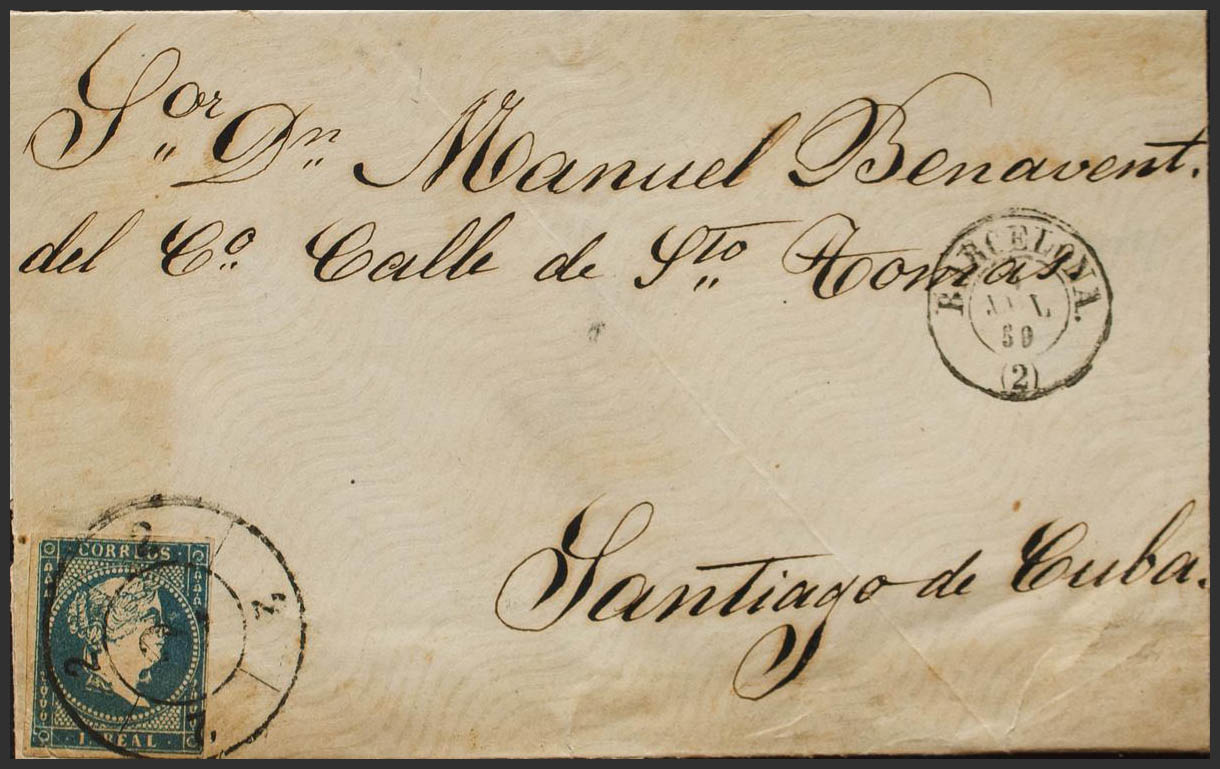 Sor. Dn. Manuel Benavent.
del Co. Calle de Sto. Tomas
BARCELONA.
59
(2)
Santiago de Cuba.
CORREOS
1 REAL
2
2
2